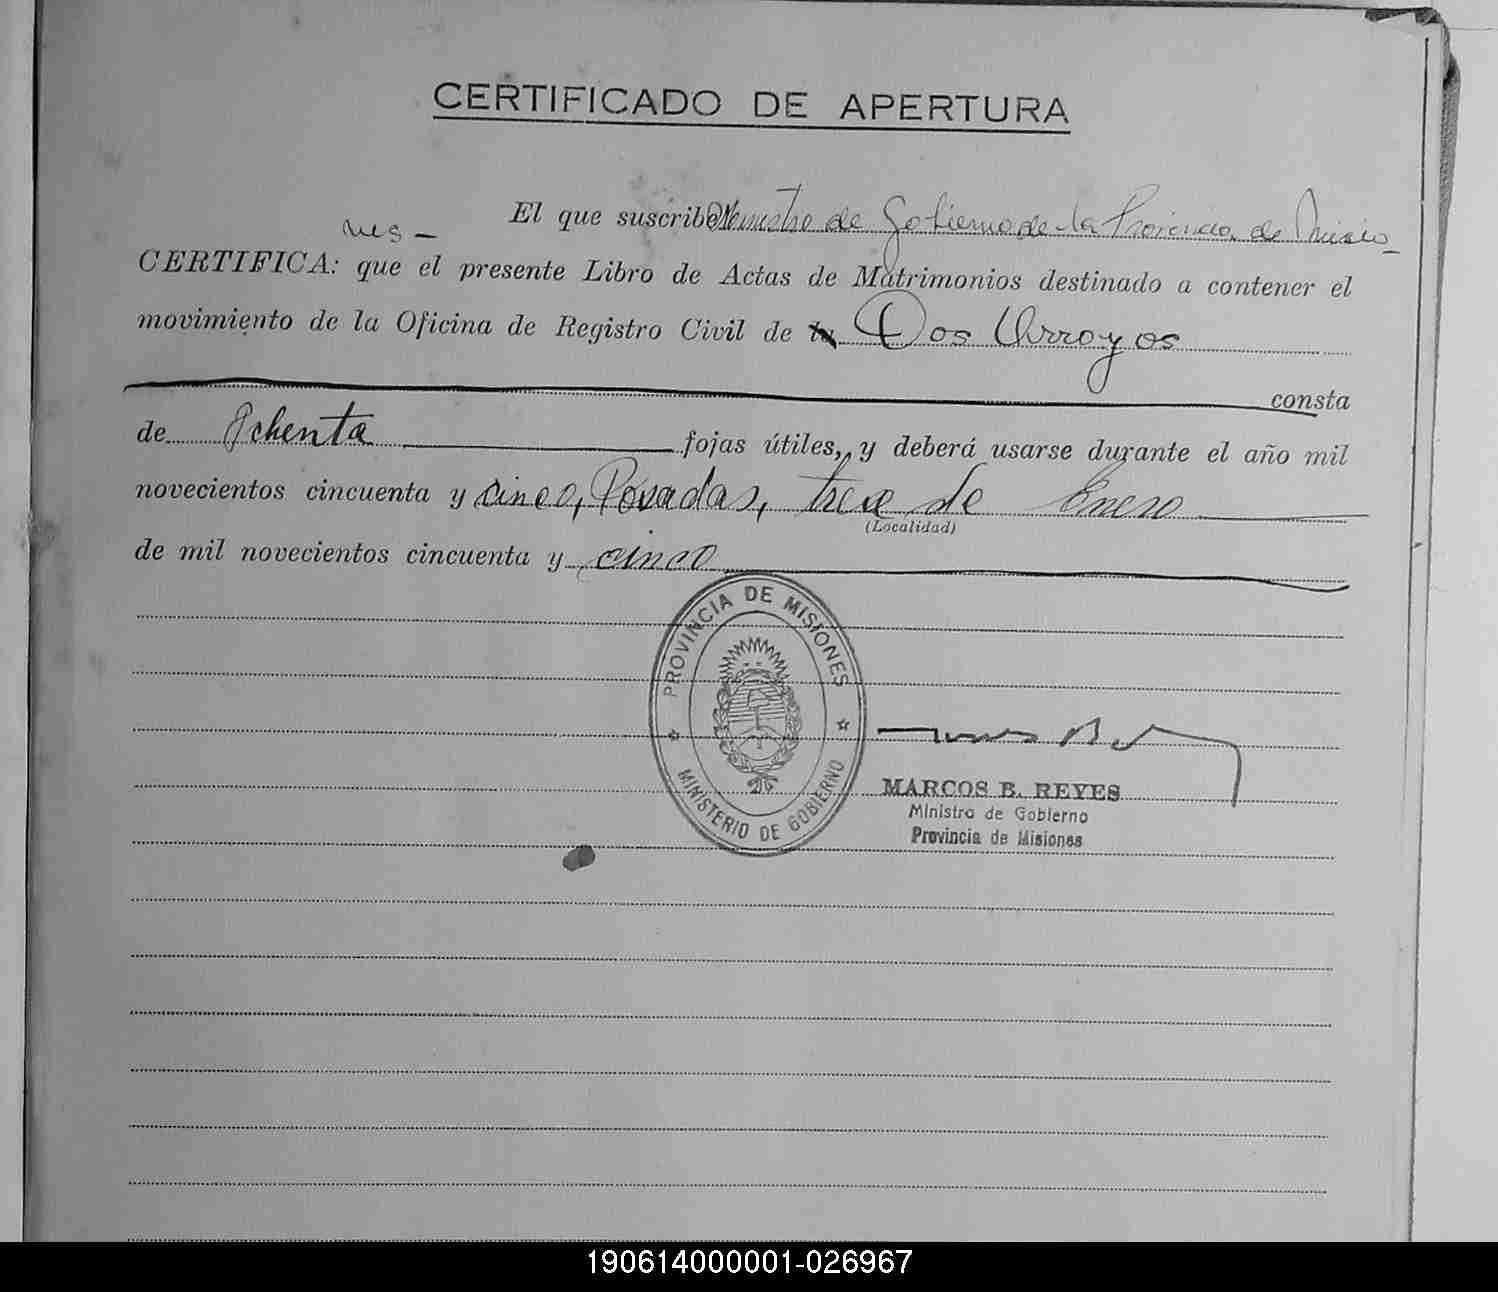 CERTIFICADO DE APERTURA
El que suscribe Ministro de Gobierno de la Provincia de Misio
nes -
CERTIFICA: que el presente Libro de Actas de Matrimonios destinado a contener el
movimiento de la Oficina de Registro Civil de la Dos Arroyos
consta
de Ochenta fojas útiles, y deberá usarse durante el año mil
novecientos cincuenta y cinco, Posadas, trece de Enero
(Localidad)
de mil novecientos cincuenta y cinco
PROVINCIA DE MISIONES
MINISTERIO DE GOBIERNO
MARCOS B. REYES
Ministro de Gobierno
Provincia de Misiones
190614000001-026967